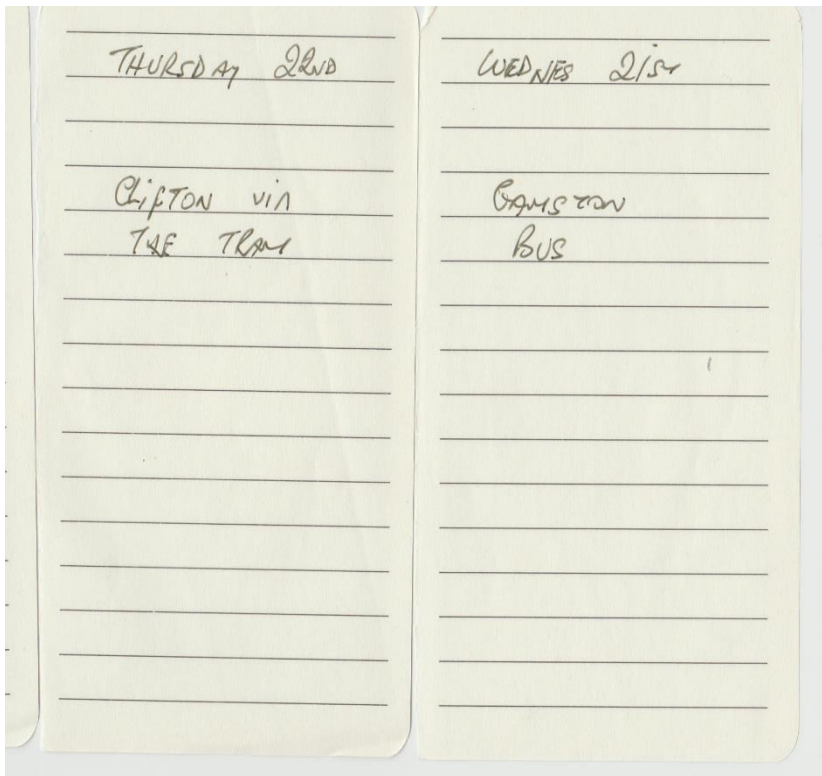 THURSDAY 22ND
Clifton via
THE TRAM
WEDNES 21st
GAMSTON
BUS